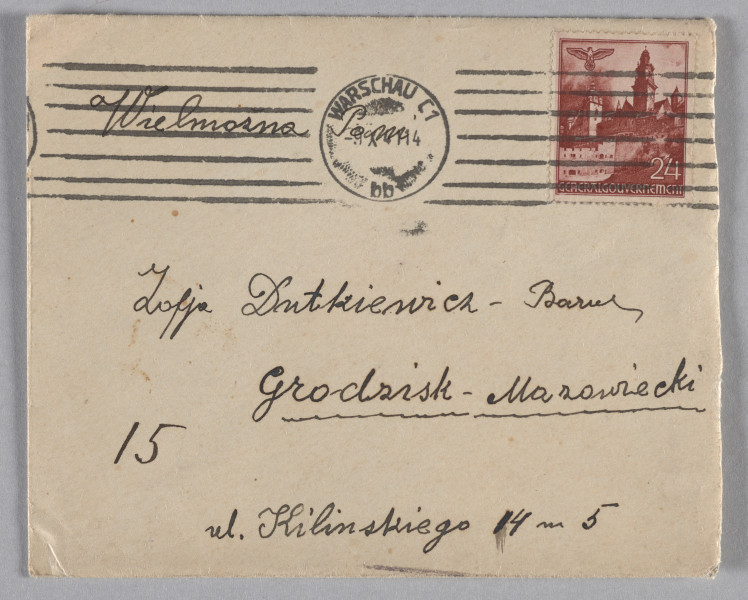 Wielmożna Pani
WARSCHAU C1
bb
24
GENERALGOUVERNEMENT
Zofja Dutkiewicz - Barwe
Grodzisk - Mazowiecki
15
ul. Kilinskiego 14 m 5